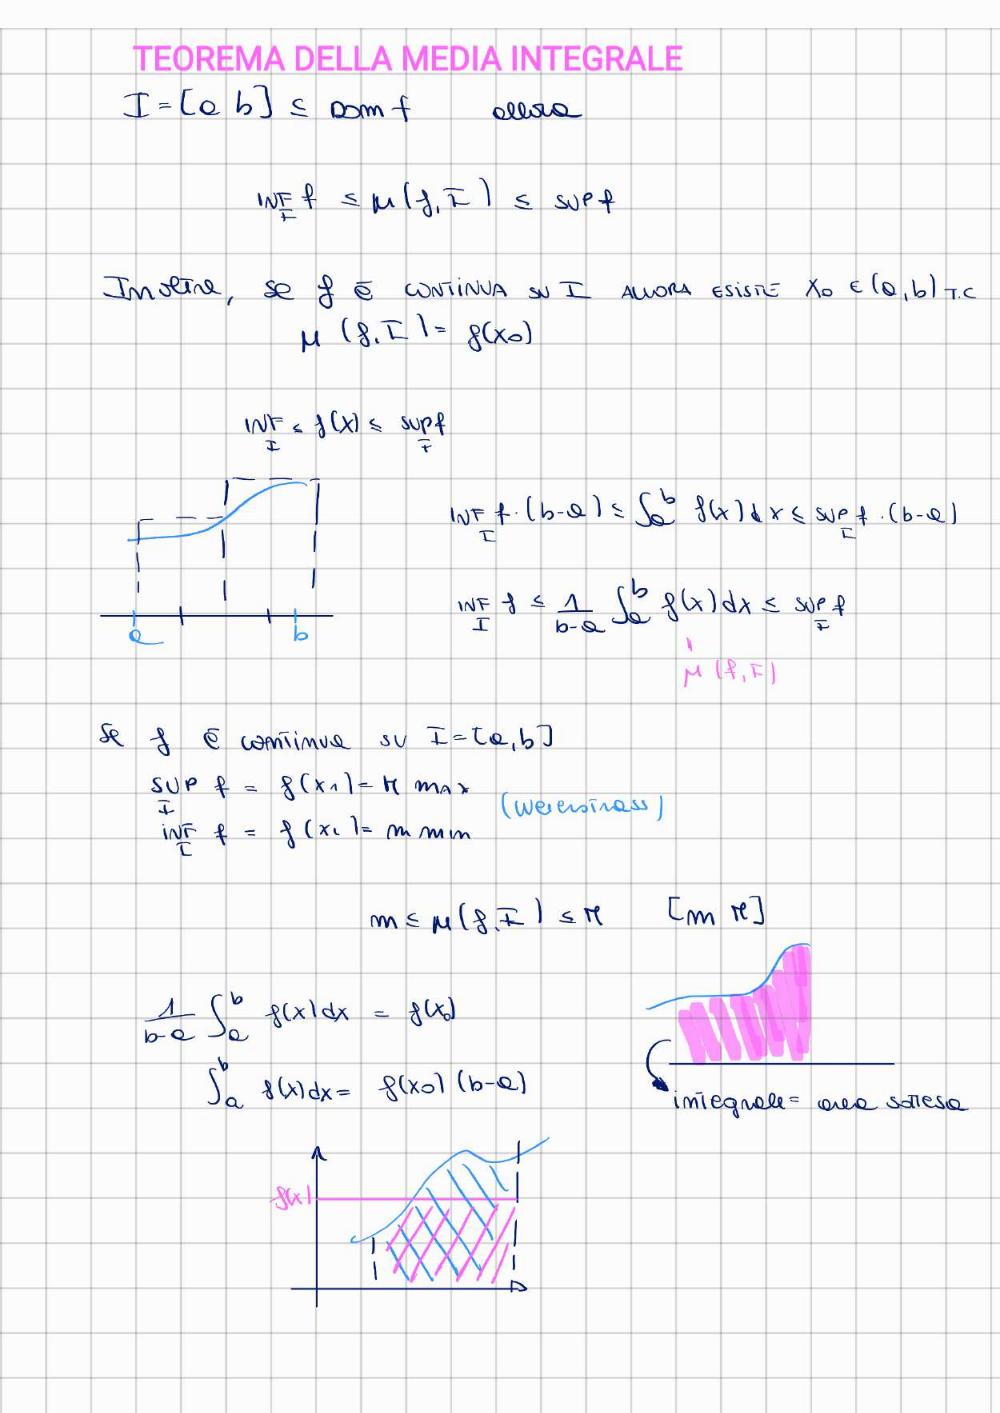 TEOREMA DELLA MEDIA INTEGRALE
I = [a b] ⊆ Dom f allora
INF_I f ≤ μ(f, I) ≤ SUP f
Inoltre, se f è CONTINUA SU I ALLORA ESISTE x₀ ∈ (a,b) T.C
μ (f, I) = f(x₀)
INF_I ≤ f(x) ≤ SUP_I f
INF_I f · (b-a) ≤ ∫_a^b f(x) dx ≤ SUP_I f · (b-a)
INF_I f ≤ 1/(b-a) ∫_a^b f(x) dx ≤ SUP_I f
a b
μ (f, I)
Se f è continua su I = [a,b]
SUP_I f = f(x₁) = M max
(Weierstrass)
INF_I f = f(x₂) = m min
m ≤ μ(f, I) ≤ M [m M]
1/(b-a) ∫_a^b f(x) dx = f(x₀)
∫_a^b f(x) dx = f(x₀) (b-a)
integrale = area sottesa
f(x)